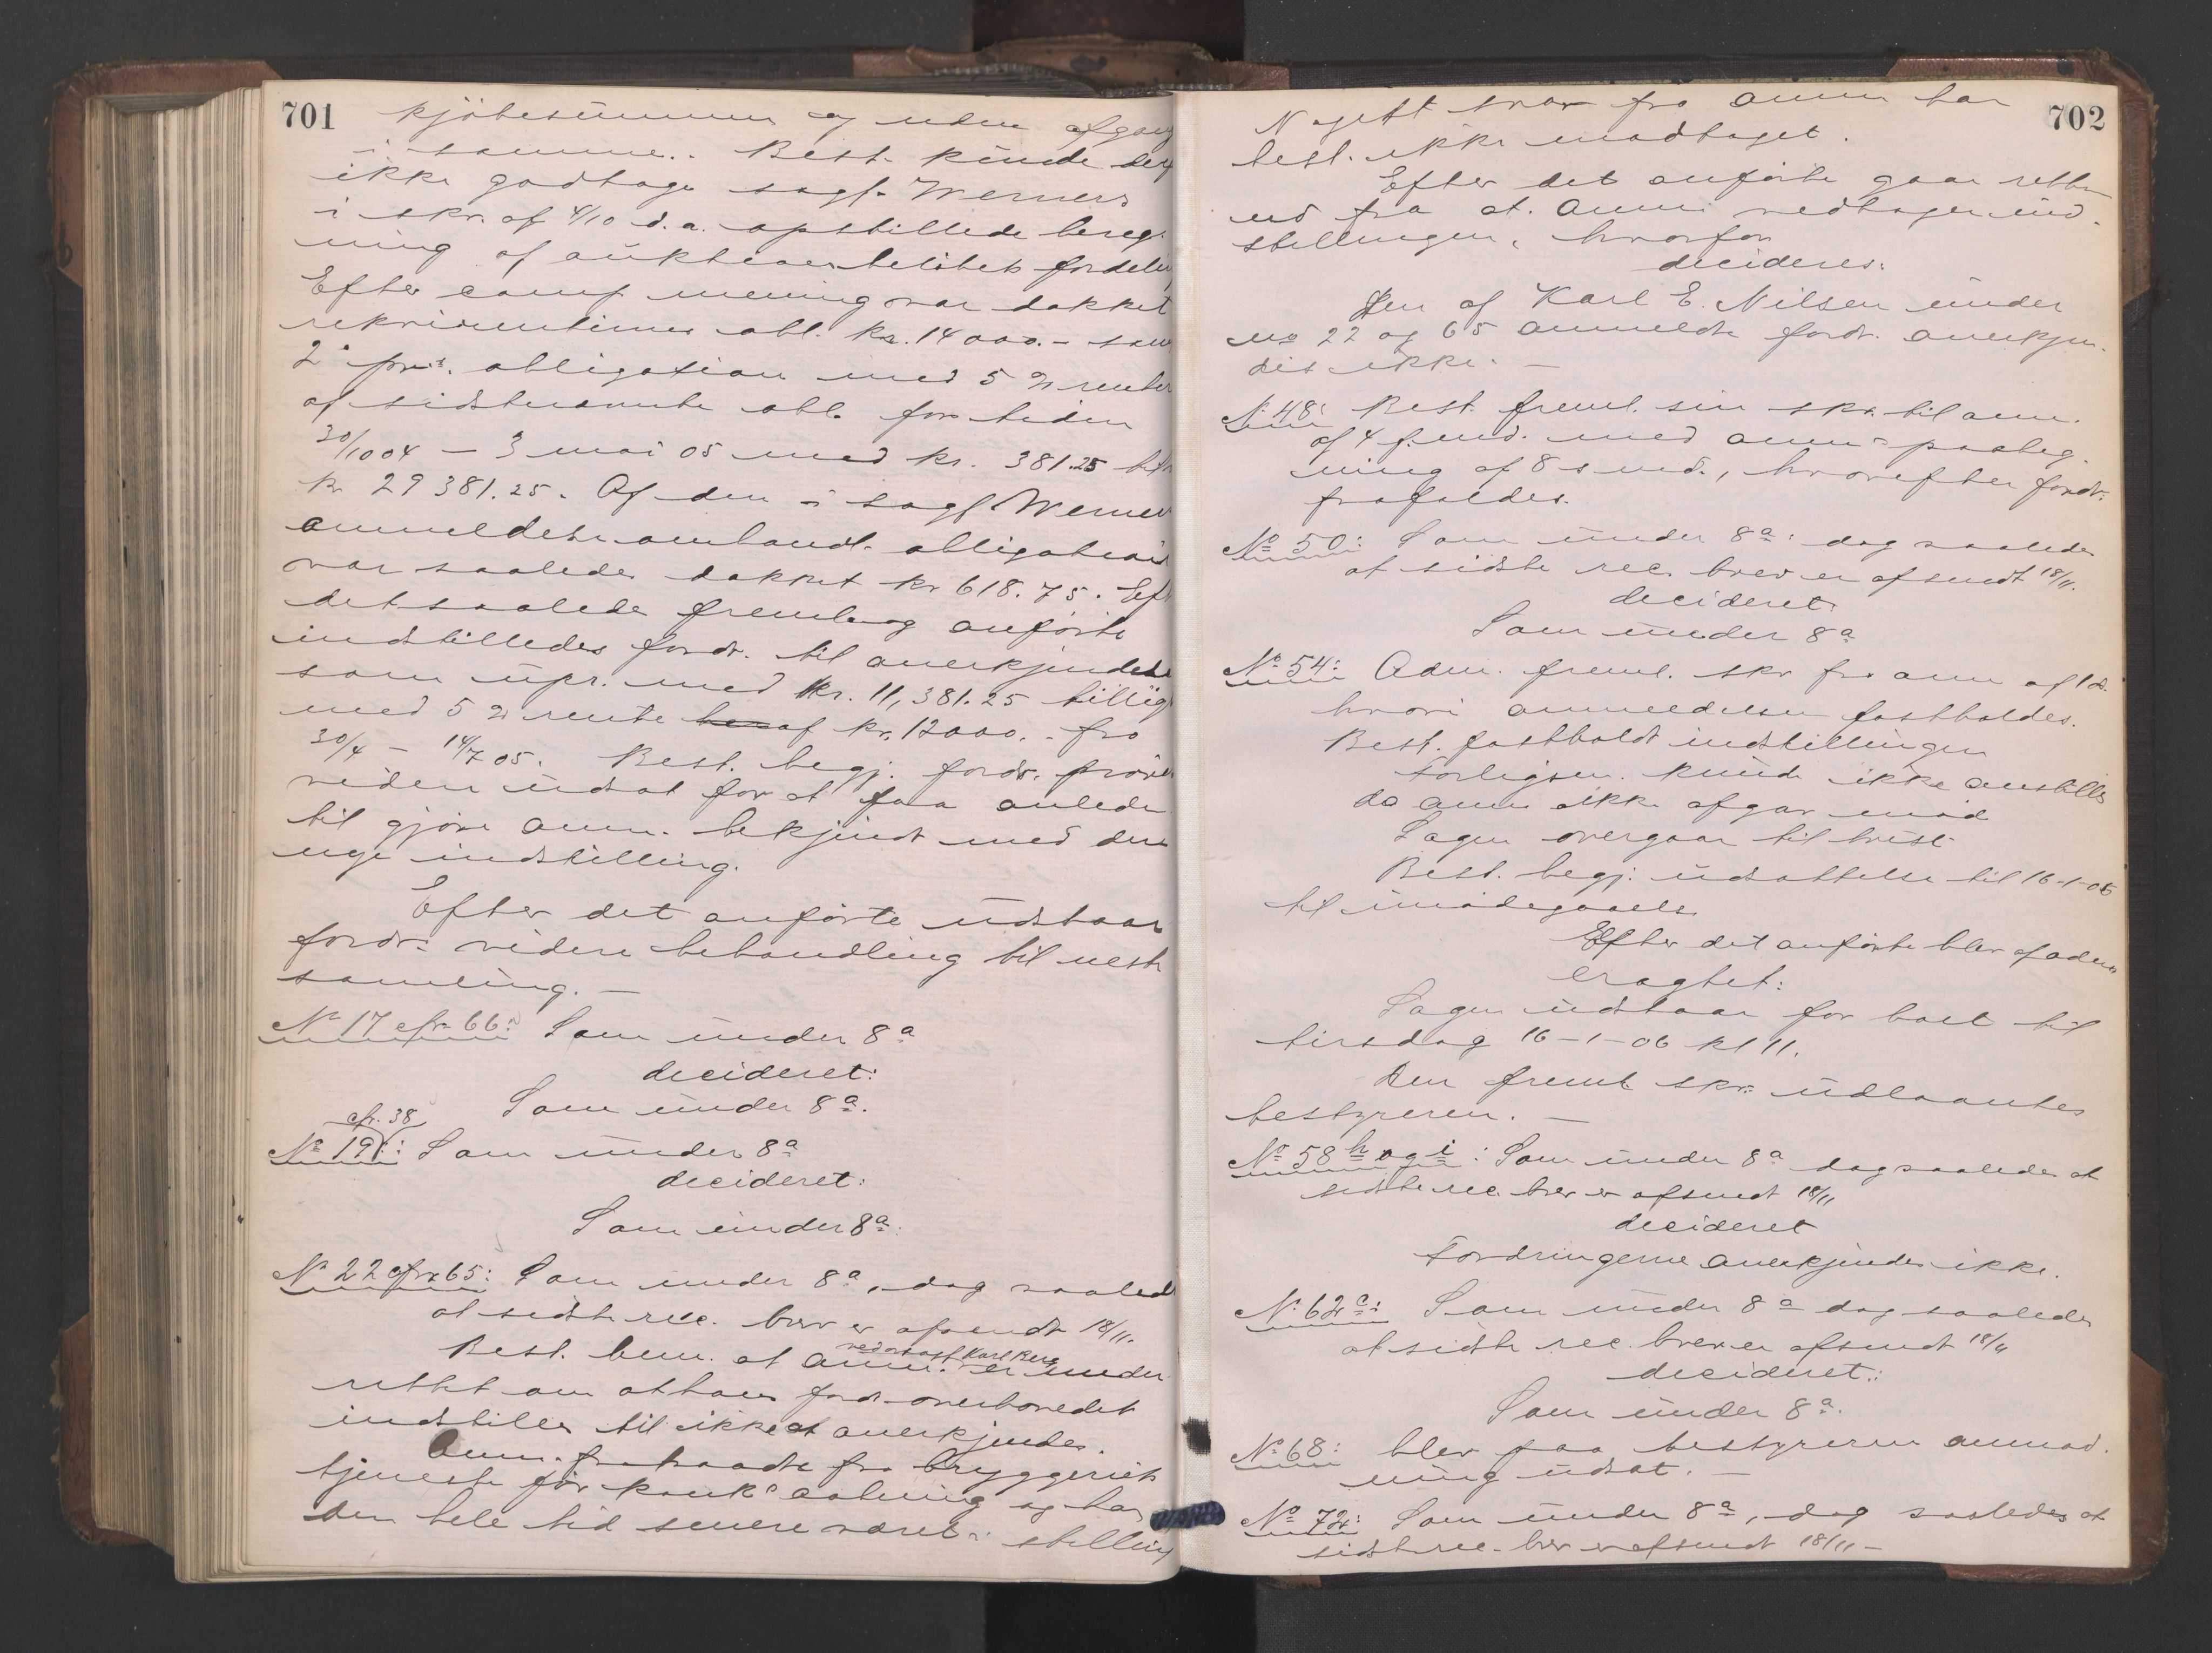 701
kjøbesummen og uden afgang
i samme. Best. kunde derf
ikke godtage sagf. Werners
i skr. af 4/10 d.a. opstillede bereg-
ning af auktionsbeløbets fordeling
Efter comp mening var dækket
rekvirentinnes obl. kr. 14 000.- som
2' prt. obligation med 5 % renter
af sidstnævnte obl. for tiden
30/10 04 – 3 mai 05 med kr. 381.25
kr 29 381.25. Af den i sagf Werners
anmeldelse omhandl. obligation
var saaledes dækket kr 618.75. Eft
det saaledes freml. og anførte
indstilledes fordr. til anerkjendelse
som upr. med kr. 11,381.25 tillig
med 5 % rente af kr. 12000.- fra
30/4 – 14/7 05. Best. begj. fordr. prøve
videre udsat for at faa anledn
til gjøre anm. bekjendt med den
nye indstilling.
Efter det anførte udstaar
fordr: videre behandling til neste
samling. –
No 17 cfr 66: Som under 8a
decideret:
Som under 8a.
cfr. 38
No 19: Som under 8a
decideret:
Som under 8a.
No 22 cfr 65: Som under 8a, dog saaled
at sidste rec. brev er afsendt 18/11.
Best. bem. at anm. ved advokat Karl Berg er under
rettet om at hans fordr overhovedet
indstilles til ikke at anerkjendes.
Anm. fratraadte fra bryggeriets
tjeneste før konks aabning og har
den hele tid senere været i stilling
702
Noget svar fra anm har
best. ikke modtaget.
Efter det anførte gaar retten
ud fra at anm. vedtager ind-
stillingen, hvorfor
decideres:
Den af Karl E. Nilsen under
no 22 og 65 anmeldte fordr. anerkjen-
des ikke. –
No 48: Best. freml. sin skr. til anm.
af 4 f. md. med anm's paateg-
ning af 8 s md., hvorefter fordr:
frafaldes.
No 50: Som under 8a: dog saaledes
at sidste rec. brev er afsendt 18/11.
decideret
Som under 8a
No 54: Adm. freml. skr fra anm af 12.
hvori anmeldelsen fastholdes.
Best. fastholdt indstillingen
Forligsm. kunde ikke anstilles
da anm ikke afgav møde
Sagen overgaar til tvist
Best. begj. udsættelse til 16-1-06
til imødegaaelse
Efter det anførte blev af adm
eragtet:
Sagen udstaar for best til
tirsdag 16-1-06 kl 11.
Den freml skr: udlaantes
bestyreren. –
No 58 h og i: Som under 8a dog saaledes at
sidste rec. brev er afsendt 18/11
decideret
Fordringerne anerkjendes ikke.
No 62c: Som under 8a dog saaledes
at sidste rec. brev er afsendt 18/11
decideret:
Som under 8a.
No 68: blev paa bestyreren anmod-
ning udsat. –
No 72: Som under 8a, dog saaledes at
sidste rec. brev er afsendt 18/11 –